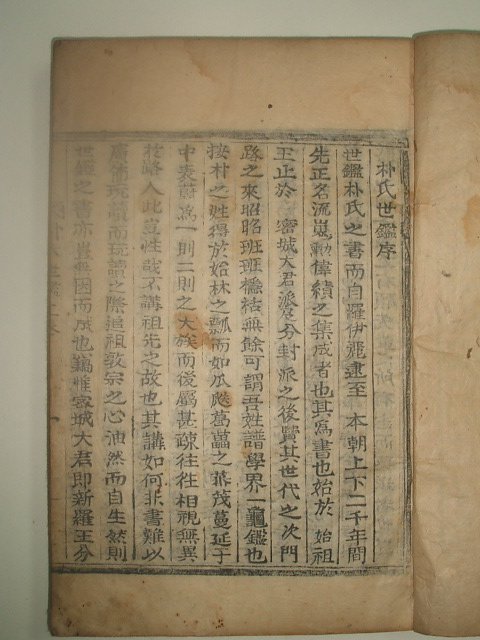 朴氏世鑑序
世鑑朴氏之書而自羅伊麗逮至 本朝上下二千年間
先正名流嵬勳偉績之集成者也其爲書也始於 始祖
王止於 密城大君派及分封派之後贒其世代之次門
路之來昭昭班班櫽括無餘可謂吾姓譜學界一龜鑑也
按朴之姓得於始林之瓢而如瓜瓞葛藟之蕃茂蔓延于
中衰爲一則二則之大族而後屬甚疎往往相視無異
於路人此豈性哉不講祖先之故也其講如何非書難以
廣布玩唄而玩讀之際追祖敦宗之心油然而自生然則
世鑑之書亦豈無因而成也竊惟密城大君即新羅王分